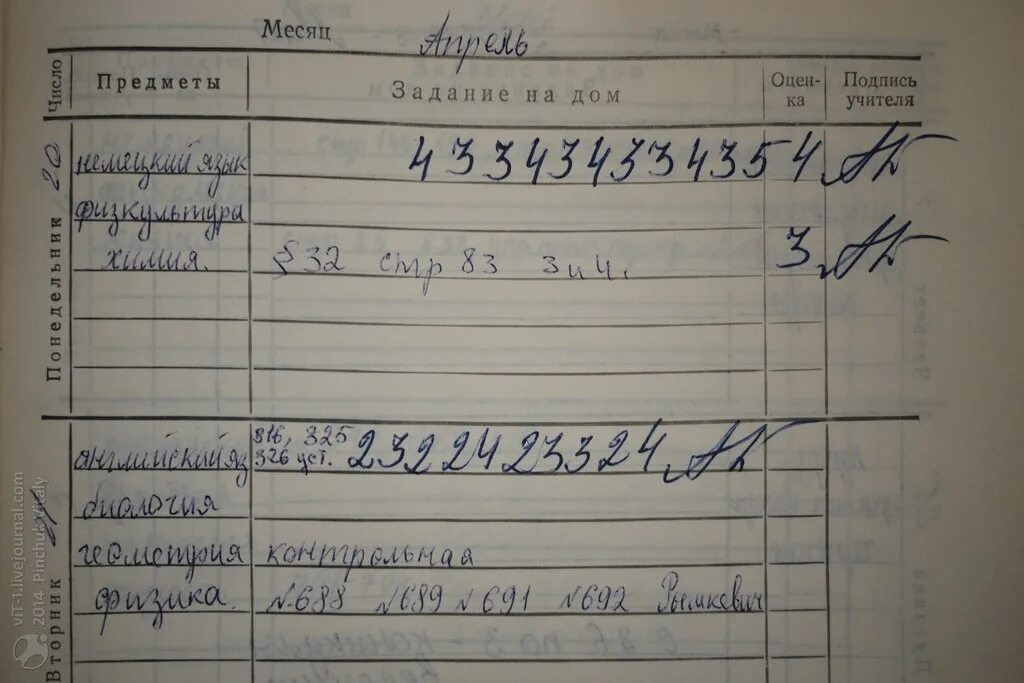 Месяц Апрель
Число Предметы Задание на дом Оцен-ка Подпись учителя
Понедельник 20
немецкий язык 4 3 3 4 3 4 3 3 4 3 5 4
физкультура
химия. § 32 стр 83 3 и 4. 3
Вторник
английский яз 316, 325 326 уст. 2 3 2 2 4 2 3 3 2 4
биология
геометрия контрольная
физика. №688 №689 №691 №692 Рымкевич
viT-1.livejournal.com
© 2014 Pinchuk Vitaly